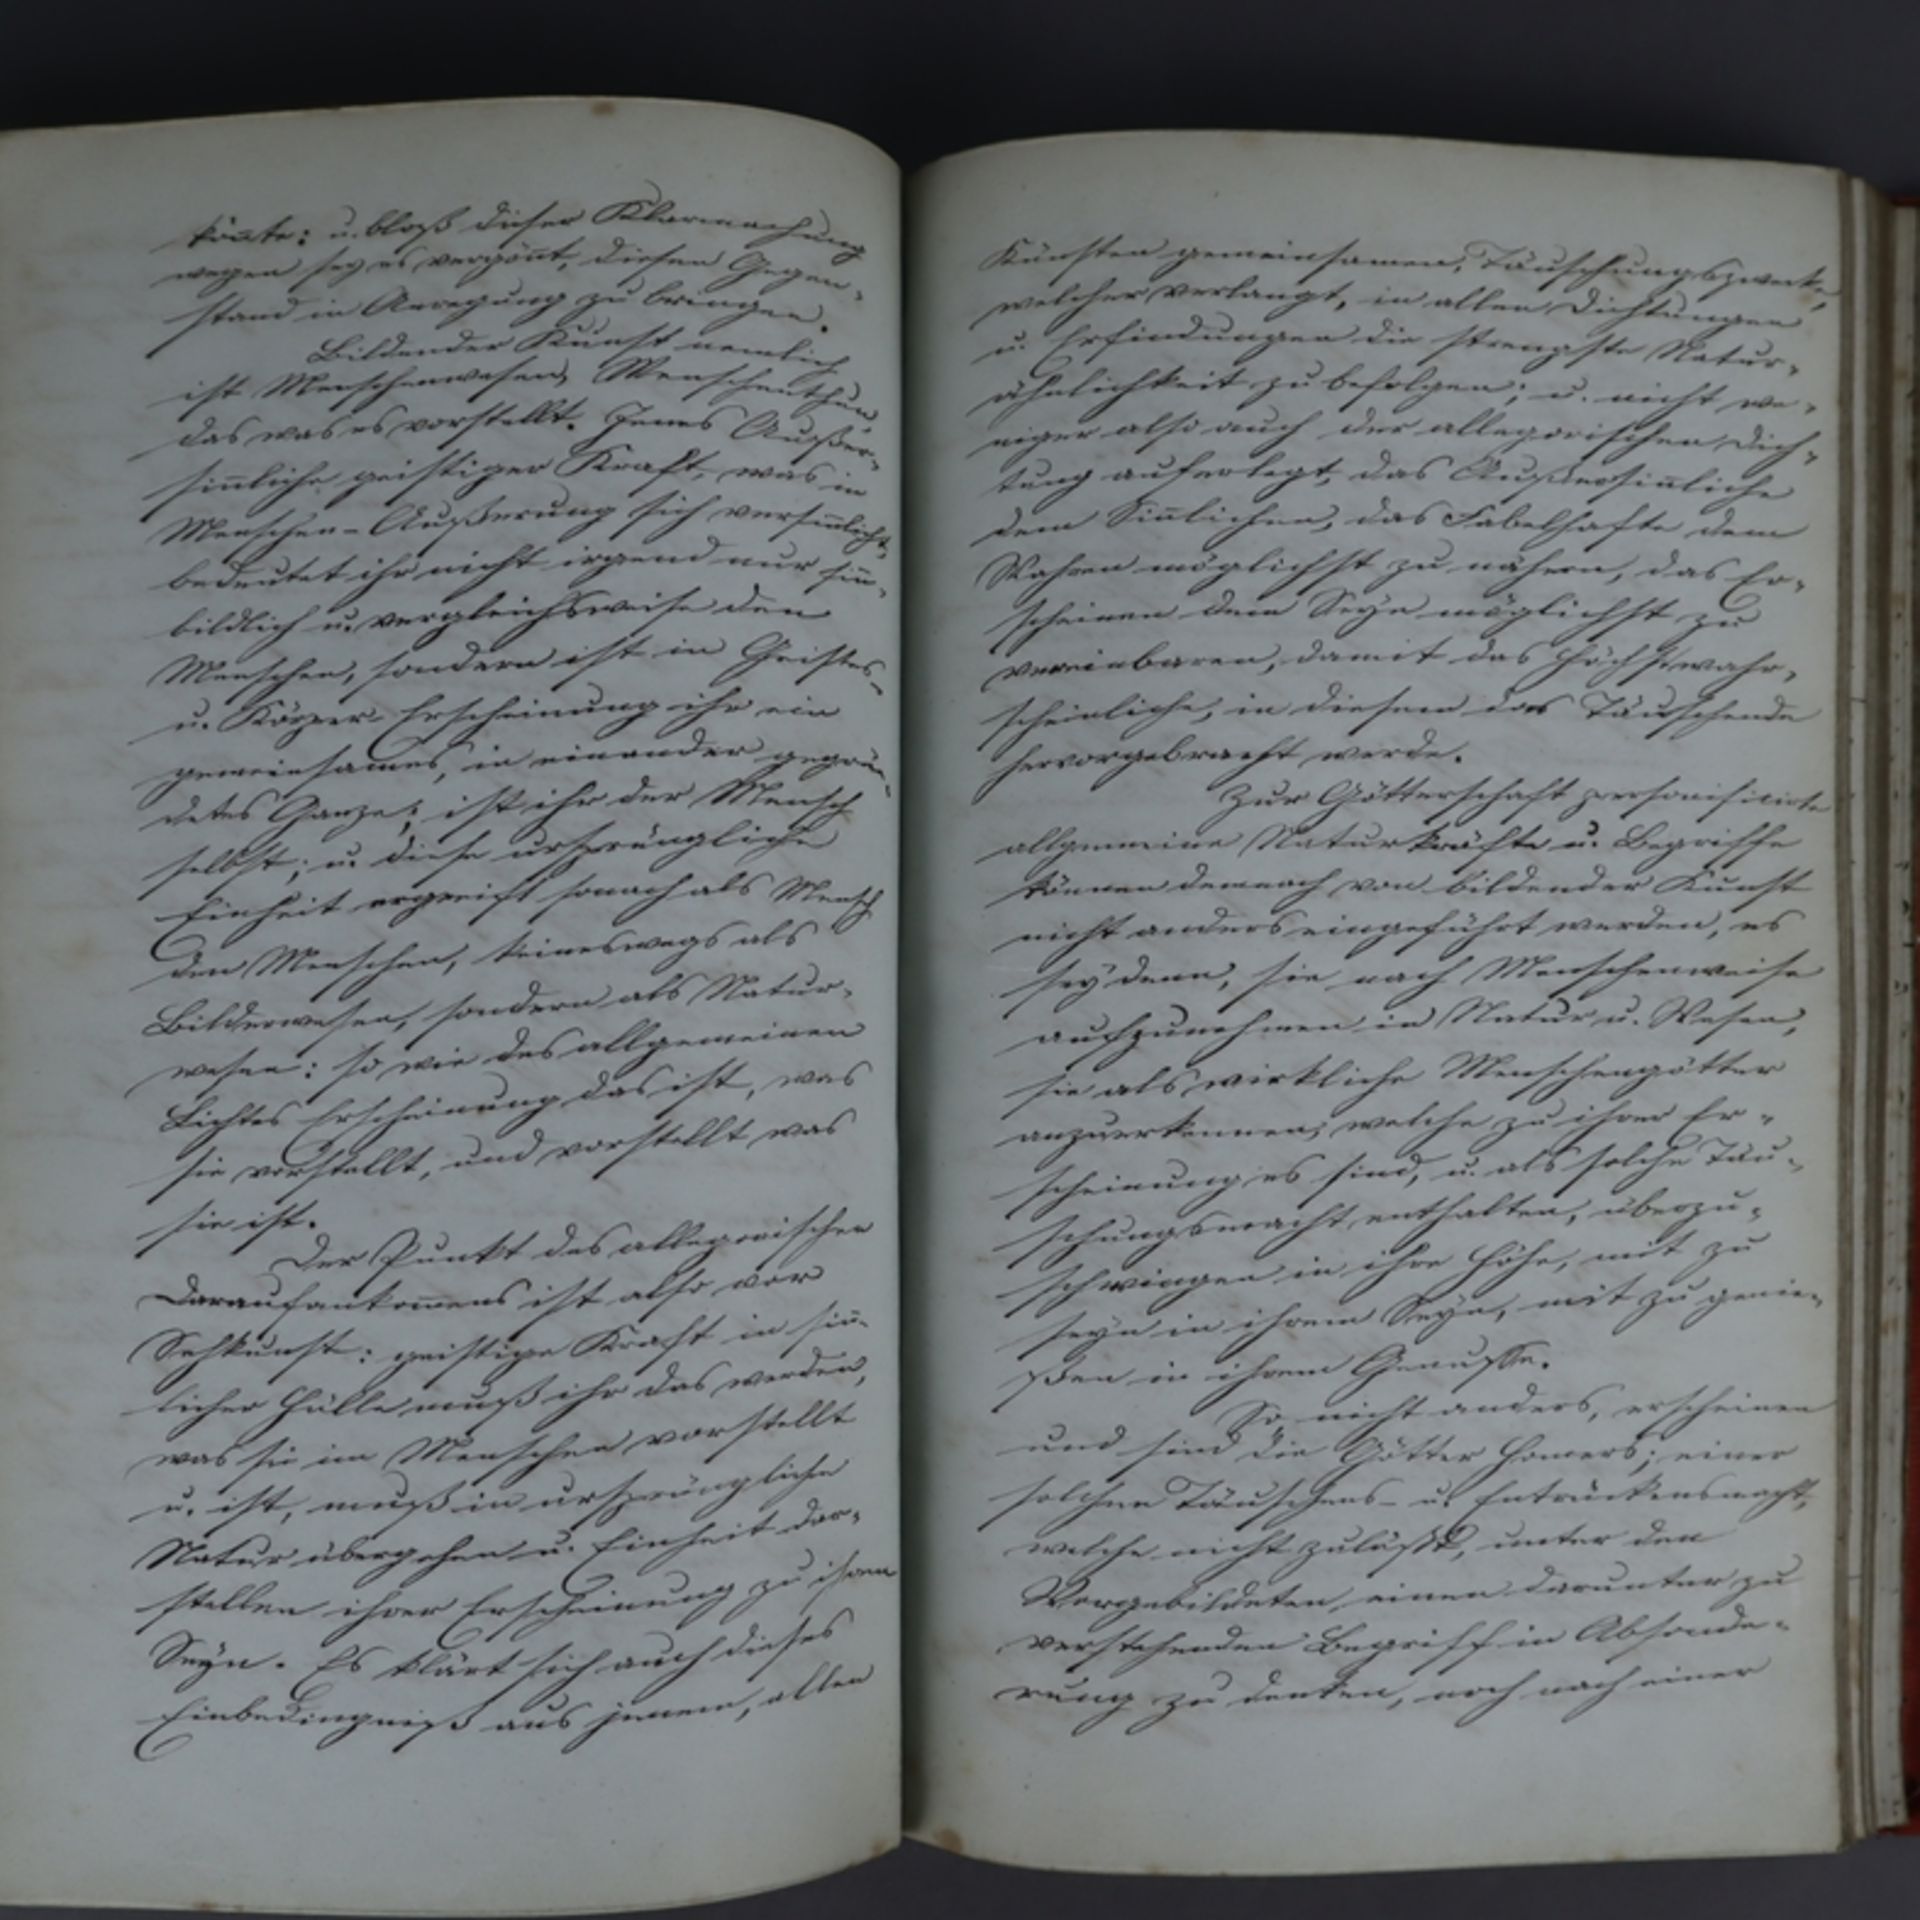 könnte: u. bloß dieser Klarmachung
wegen sey es vergönt, diesen Gegen-
stand in Anregung zu bringen.
Bildender Kunst nemlich
ist Menschenwesen, Menschenthun,
das was es vorstellt. Jenes Außer-
sinliche geistiger Kraft, was in
Menschen-Äußerung sich versinlicht,
bedeutet ihr nicht irgend nur sin-
bildlich u. vergleichsweise den
Menschen, sondern ist in Geistes-
u. Körper-Erscheinung ihr ein
gemeinsames, in einander gegrün-
detes Ganze; ist ihr der Mensch
selbst; u. diese ursprüngliche
Einheit ergreift sonach als Mensch
den Menschen, keineswegs als
Bilderwesen, sondern als Natur-
wesen: so wie des allgemeinen
Lichtes Erscheinung das ist, was
sie vorstellt, und vorstellt was
sie ist.
Der Punkt des allegorischen
Daraufankomens ist also vor
Sehkunst: geistige Kraft in sin-
licher Hülle muß ihr das werden,
was sie im Menschen vorstellt
u. ist, muß in ursprüngliche
Natur übergehen u. Einheit dar-
stellen ihrer Erscheinung zu ihrem
Seyn. Es klärt sich auch dieses
Einbedingniß aus jenem, allen
Künsten gemeinsamen, Täuschungszwecke,
welcher verlangt, in allen Dichtungen
u. Erfindungen die strengste Natur-
ähnlichkeit zu befolgen; u. nicht we-
niger also auch der allegorischen Dich-
tung auferlegt, das Außersinliche
dem Sinlichen, das Fabelhafte dem
Wahren möglichst zu nähern, das Er-
scheinen dem Seyn möglichst zu
vereinbaren, damit das Höchstwahr-
scheinliche, in diesem das Täuschende
hervorgebracht werde.
Zur Götterschaft personificirte
allgemeine Naturkräfte u. Begriffe
können demnach von bildender Kunst
nicht anders eingeführt werden, es
sey denn, sie nach Menschenweise
aufzunehmen in Natur u. Wesen,
sie als wirkliche Menschengötter
anzuerkennen; welche zu ihrer Er-
scheinung es sind, u. als solche Täu-
schungsmacht enthalten, überzu-
schwingen in ihre Höhe, mit zu
seyn in ihrem Seyn, mit zu genie-
ßen in ihrem Genusse.
So, nicht anders, erscheinen
und sind die Götter Homers; einer
solchen Täuschens- u. Entrückensmacht,
welche nicht zuläßt, unter den
Vorgebildeten einen darunter zu
verstehenden Begriff in Absonde-
rung zu denken, noch nach einer